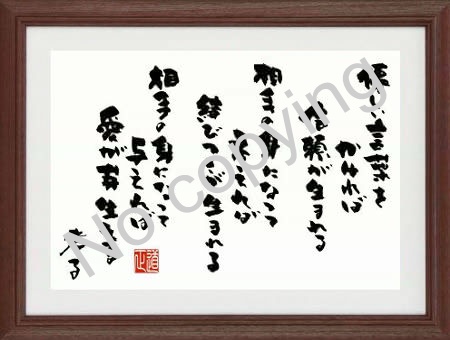 優しい言葉を
かければ
信頼が生まれる
相手の身になって
考えれば
結びつきが生まれる
相手の身になって
与えれば
愛が芽生える
老子
No copying